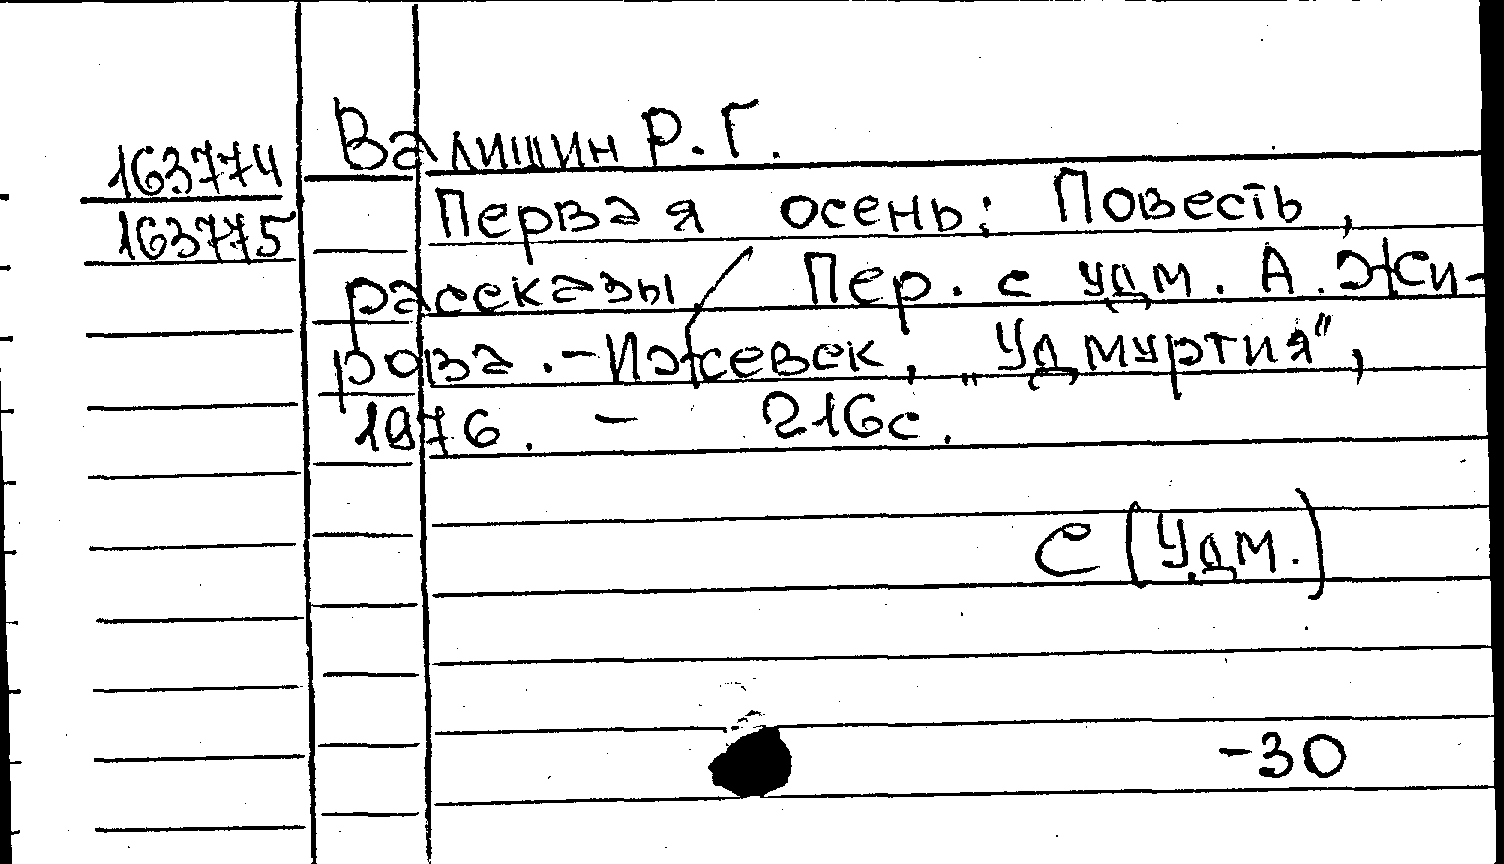 163774
163775
Валишин Р. Г.
Первая осень: Повесть,
рассказы / Пер. с удм. А. Жи-
рова. - Ижевск, „Удмуртия",
1976. - 216с.
С (Удм.)
-30